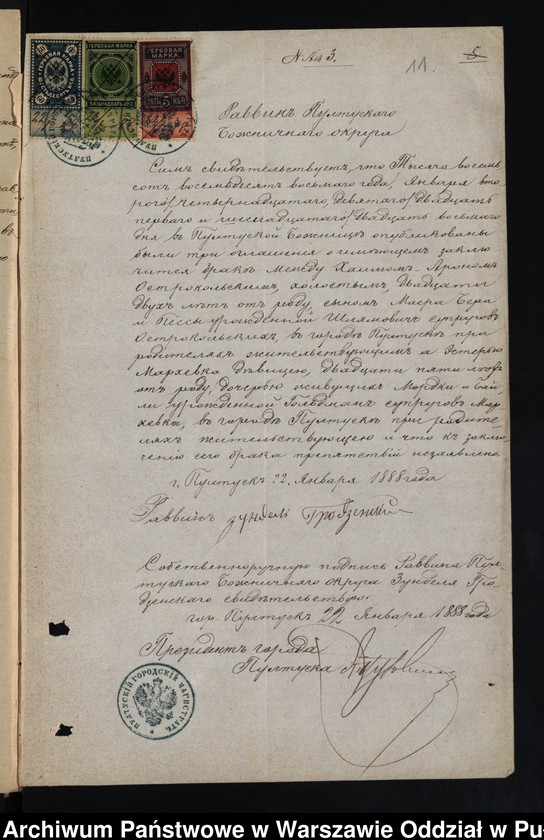 N Akt 3.
11.
5
ГЕРБОВАЯ МАРКА
ГЕРБОВАЯ МАРКА
ГЕРБОВАЯ МАРКА
ПЯТЬ 5 КОП
Раввинъ Пултускаго
Божничнаго округа
Симъ свидѣтельствуетъ, что Тысяча восемь
сотъ восемьдесятъ восьмаго года Января вто
рого/четырнадцатаго, девятаго/двадцать
перваго и шестнадцатаго/двадцать восьмаго
дня въ Пултуской Божницѣ опубликованы
были три оглашенія о имѣющемъ заклю
чится бракѣ между Хаимомъ-Арономъ
Острокольскимъ, холостымъ, двадцати
двухъ лѣтъ отъ роду, сыномъ Маера Бера
и Пессы урожденной Шлямовичъ супруговъ
Острокольскихъ, въ городѣ Пултускѣ при
родителяхъ жительствующимъ а Эстерью
Мархевка дѣвицею, двадцати пяти лѣтъ
отъ роду, дочерью живущихъ Мордки и Бай
ли урожденной Гольдманъ супруговъ Мар
хевка, въ городѣ Пултускѣ при родите=
ляхъ жительствующею и что къ заклю
ченію сего брака препятствій незаявлено.
г. Пултускъ 22 Января 1888 года
Раввинъ Зундель Гродзенскій
Собственноручную подпись Раввина Пул
тускаго Божничнаго округа Зунделя Гро
дзенскаго свидѣтельствую.
гор. Пултускъ 22 Января 1888 года
Президентъ города
Пултуска
ПУЛТУСКІЙ ГОРОДСКІЙ МАГИСТРАТЪ
Archiwum Państwowe w Warszawie Oddział w Pu